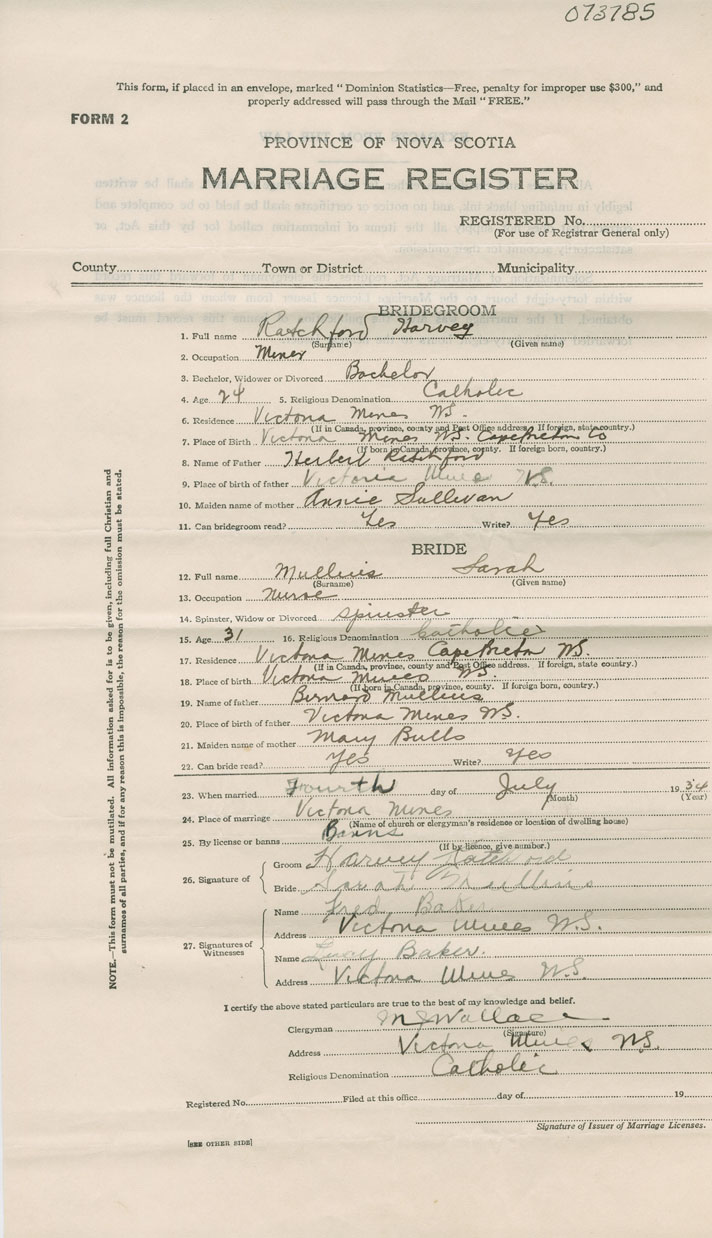 073785
This form, if placed in an envelope, marked "Dominion Statistics—Free, penalty for improper use $300," and
properly addressed will pass through the Mail "FREE."
FORM 2
PROVINCE OF NOVA SCOTIA
MARRIAGE REGISTER
REGISTERED No.
(For use of Registrar General only)
County Town or District Municipality
BRIDEGROOM
1. Full name Ratchford Harvey
(Surname) (Given name)
2. Occupation Miner
3. Bachelor, Widower or Divorced Bachelor
4. Age 24 5. Religious Denomination Catholic
6. Residence Victoria Mines N.S.
(If in Canada, province, county and Post Office address. If foreign, state country.)
7. Place of Birth Victoria Mines N.S. Cape Breton Co
(If born in Canada, province, county. If foreign born, country.)
8. Name of Father Herbert Ratchford
9. Place of birth of father Victoria Mines N.S.
10. Maiden name of mother Annie Sullivan
11. Can bridegroom read? Yes Write? Yes
BRIDE
12. Full name Mullins Sarah
(Surname) (Given name)
13. Occupation Nurse
14. Spinster, Widow or Divorced Spinster
15. Age 31 16. Religious Denomination Catholic
17. Residence Victoria Mines Cape Breton N.S.
(If in Canada, province, county and Post Office address. If foreign, state country.)
18. Place of birth Victoria Mines N.S.
(If born in Canada, province, county. If foreign born, country.)
19. Name of father Bernard Mullins
20. Place of birth of father Victoria Mines N.S.
21. Maiden name of mother Mary Butts
22. Can bride read? Yes Write? Yes
23. When married Fourth day of July 1934
(Month) (Year)
24. Place of marriage Victoria Mines
(Name of church or clergyman's residence or location of dwelling house)
25. By license or banns Banns
(If by licence, give number.)
26. Signature of
Groom Harvey Ratchford
Bride Sarah Mullins
27. Signatures of Witnesses
Name Fred Baker
Address Victoria Mines N.S.
Name Baker.
Address Victoria Mines N.S.
I certify the above stated particulars are true to the best of my knowledge and belief.
Clergyman Wallace
(Signature)
Address Victoria Mines N.S.
Religious Denomination Catholic
Registered No. Filed at this office day of 19
Signature of Issuer of Marriage Licenses.
[SEE OTHER SIDE]
NOTE.—This form must not be mutilated. All information asked for is to be given, including full Christian and
surnames of all parties, and if for any reason this is impossible, the reason for the omission must be stated.